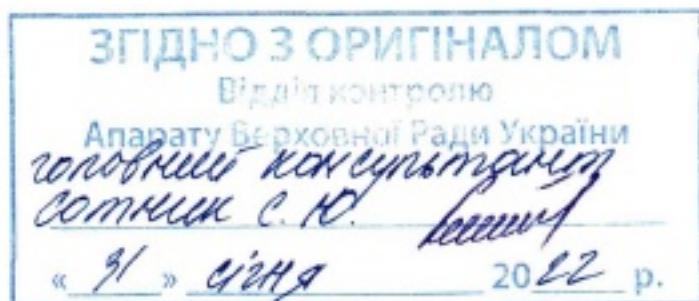 ЗГІДНО З ОРИГІНАЛОМ
Відділ контролю
Апарату Верховної Ради України
головний консультант
Сотник С. Ю.
« 31 » січня 2022 р.